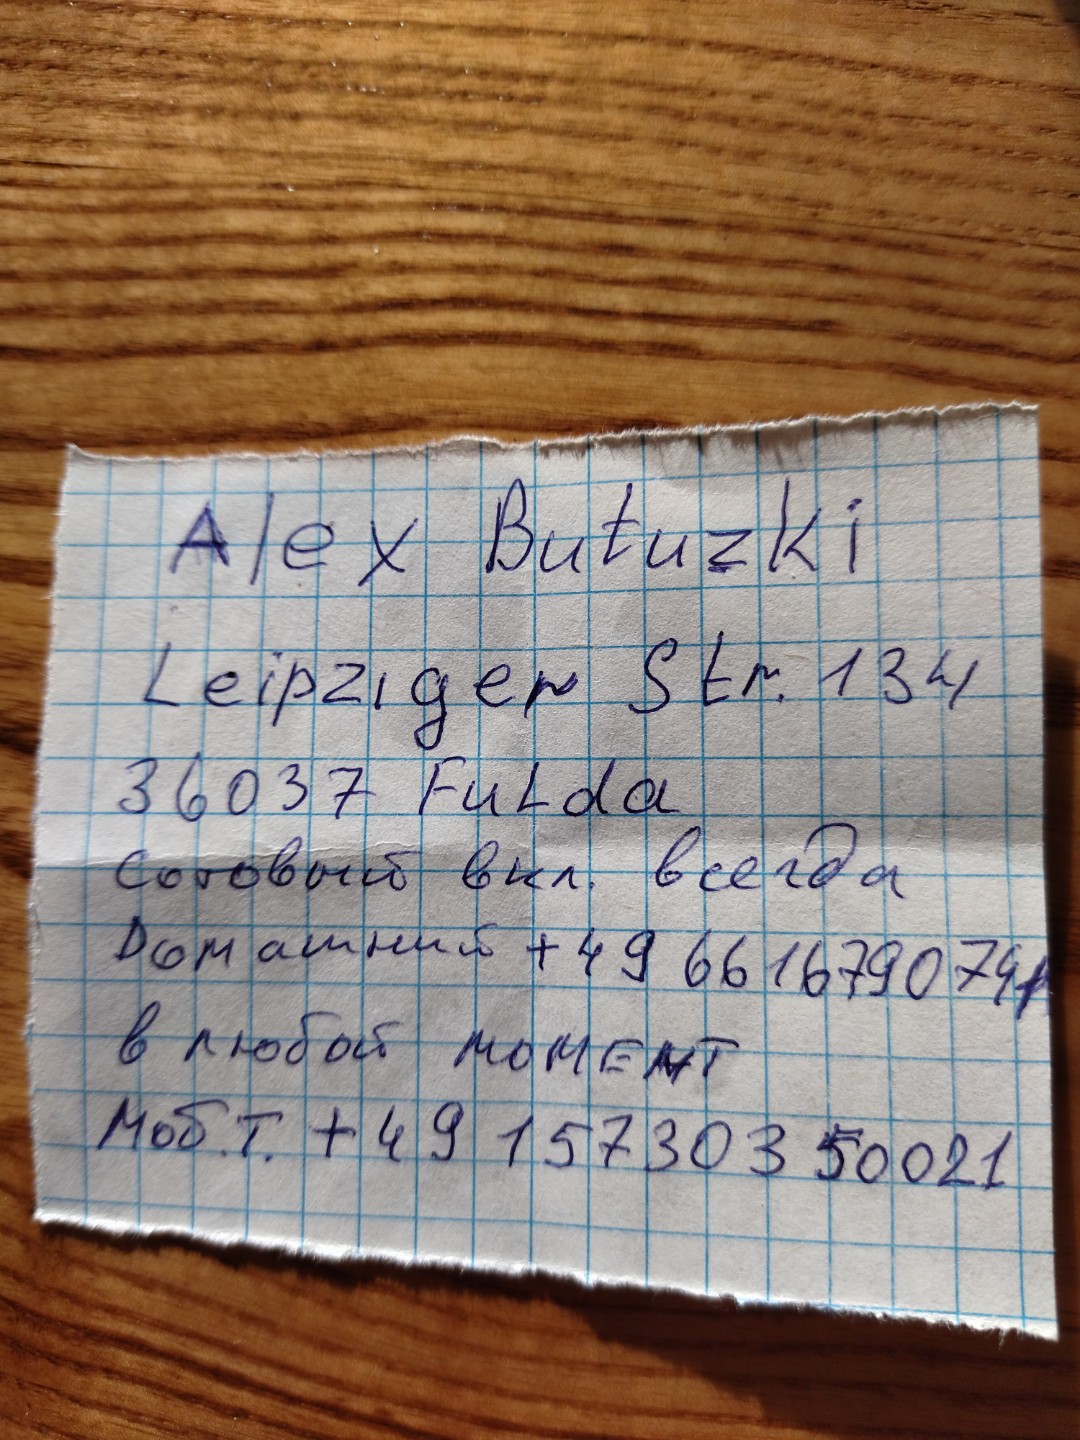 Alex Butuzki
Leipziger Str. 134
36037 Fulda
Сотовый вкл. всегда
Домашний +49 6616790741
в любой момент
Моб.т. +49 157303 50021